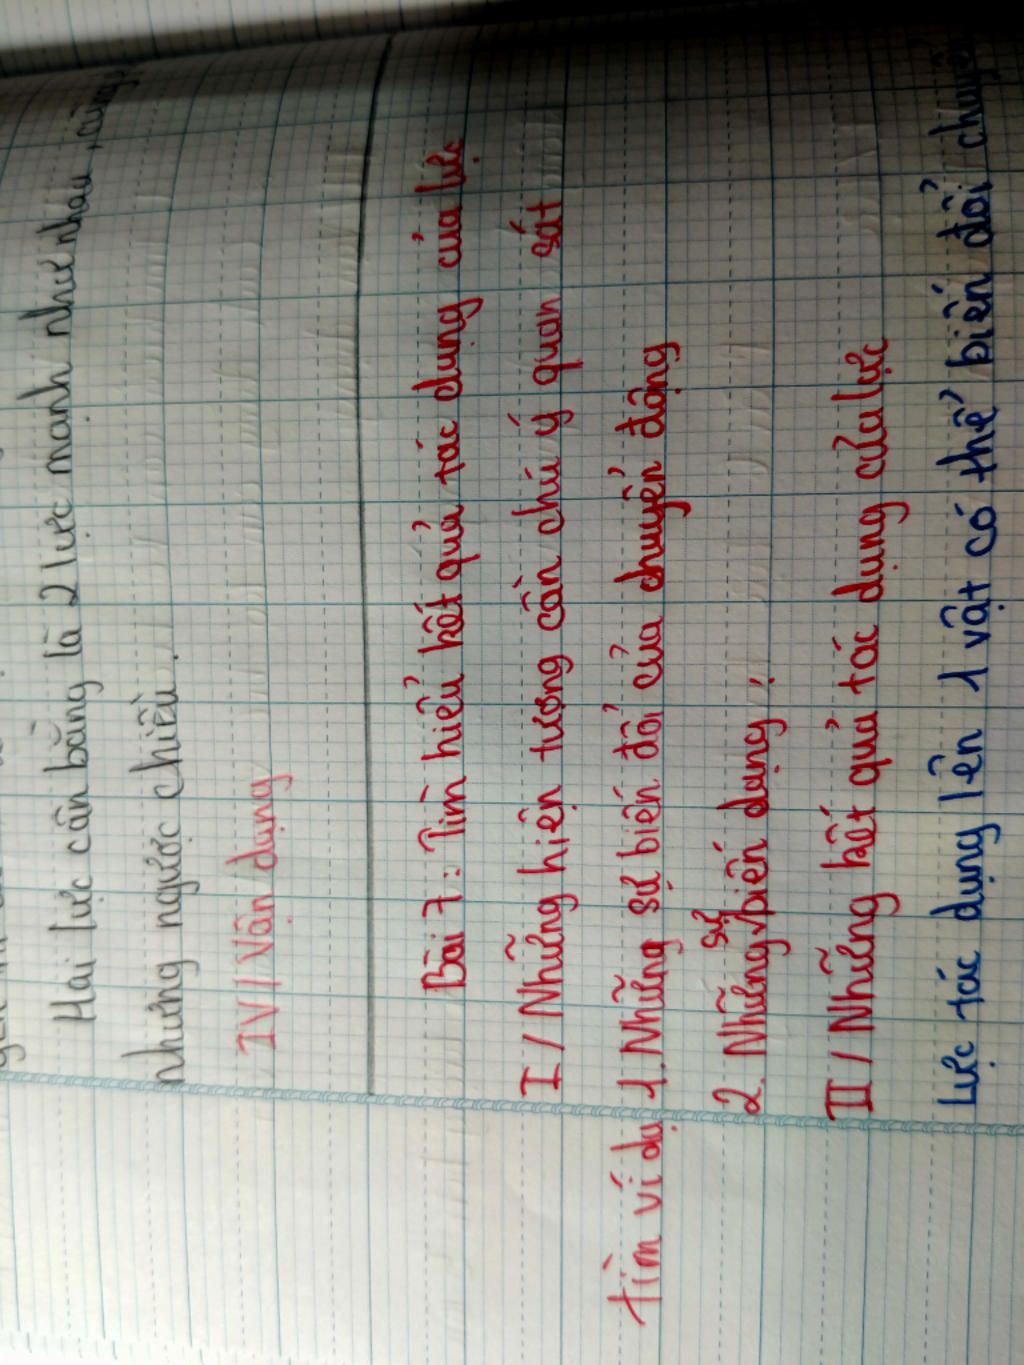 Hai lực cân bằng là 2 lực mạnh như nhau, cùng
nhưng ngược chiều.
IV/ Vận dụng
Bài 7: Tìm hiểu kết quả tác dụng của lực
I/ Những hiện tượng cần chú ý quan sát
Tìm ví dụ 1. Những sự biến đổi của chuyển động
2. Những sự biến dạng:
II/ Những kết quả tác dụng của lực
Lực tác dụng lên 1 vật có thể biến đổi chuyển